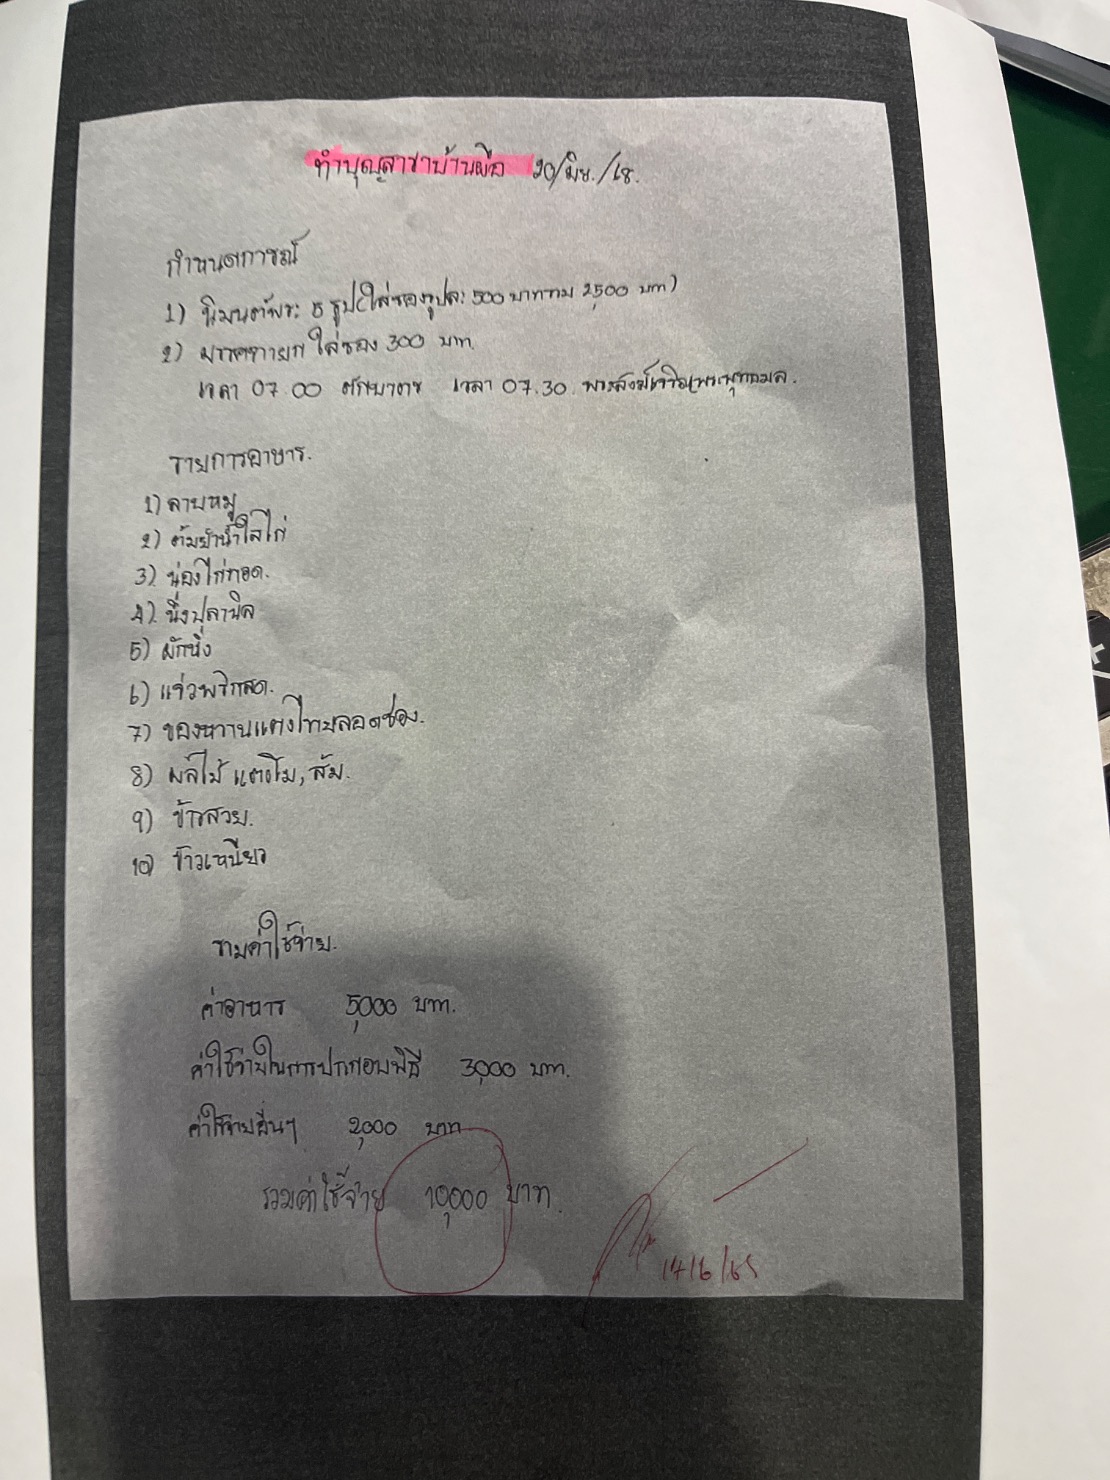 ทำบุญสาขาบ้านผือ 20/มิย./68.
กำหนดการณ์
1) นิมนต์พระ 5 รูป(ใส่ซองรูปละ 500 บาทรวม 2,500 บาท)
2) มรรคทายก ใส่ซอง 300 บาท.
เวลา 07.00 ตักบาตร เวลา 07.30. พระสงฆ์เจริญพระพุทธมล.
รายการอาหาร.
1) ลาบหมู
2) ต้มยำน้ำใสไก่
3) น่องไก่ทอด.
4) นึ่งปลานิล
5) ผักนึ่ง
6) แจ่วพริกสด.
7) ของหวานแตงไทยลอดช่อง.
8) ผลไม้ แตงโม, ส้ม.
9) ข้าวสวย.
10) ข้าวเหนียว
รวมค่าใช้จ่าย.
ค่าอาหาร 5,000 บาท.
ค่าใช้จ่ายในการประกอบพิธี 3,000 บาท.
ค่าใช้จ่ายอื่นๆ 2,000 บาท
รวมค่าใช้จ่าย 10,000 บาท.
14/6/65